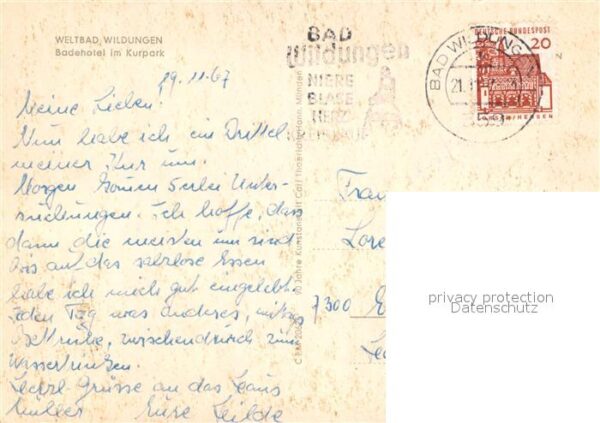 WELTBAD WILDUNGEN
Badehotel im Kurpark
19.11.67
Meine Lieben!
Nun habe ich ein Drittel
meiner Kur um.
Morgen kommen 5erlei Unter-
suchungen. Ich hoffe, dass
dann die meisten um sind
bis auf das salzlose Essen
habe ich mich gut eingelebt
jeden Tag was anderes, mittags
Bettruhe, zwischendurch zum
Wassertrinken.
Herzl. Grüsse an das Haus
Müller Eure Hilde
BAD
Wildungen
NIERE
BLASE
HERZ
KREISLAUF
BAD WILDUNGEN
21.11
DEUTSCHE BUNDESPOST
20
LORSCH/HESSEN
70 Jahre Kunstanstalt Carl Thoericht, Hann. Münden
Frau
Lore
7300
privacy protection
Datenschutz